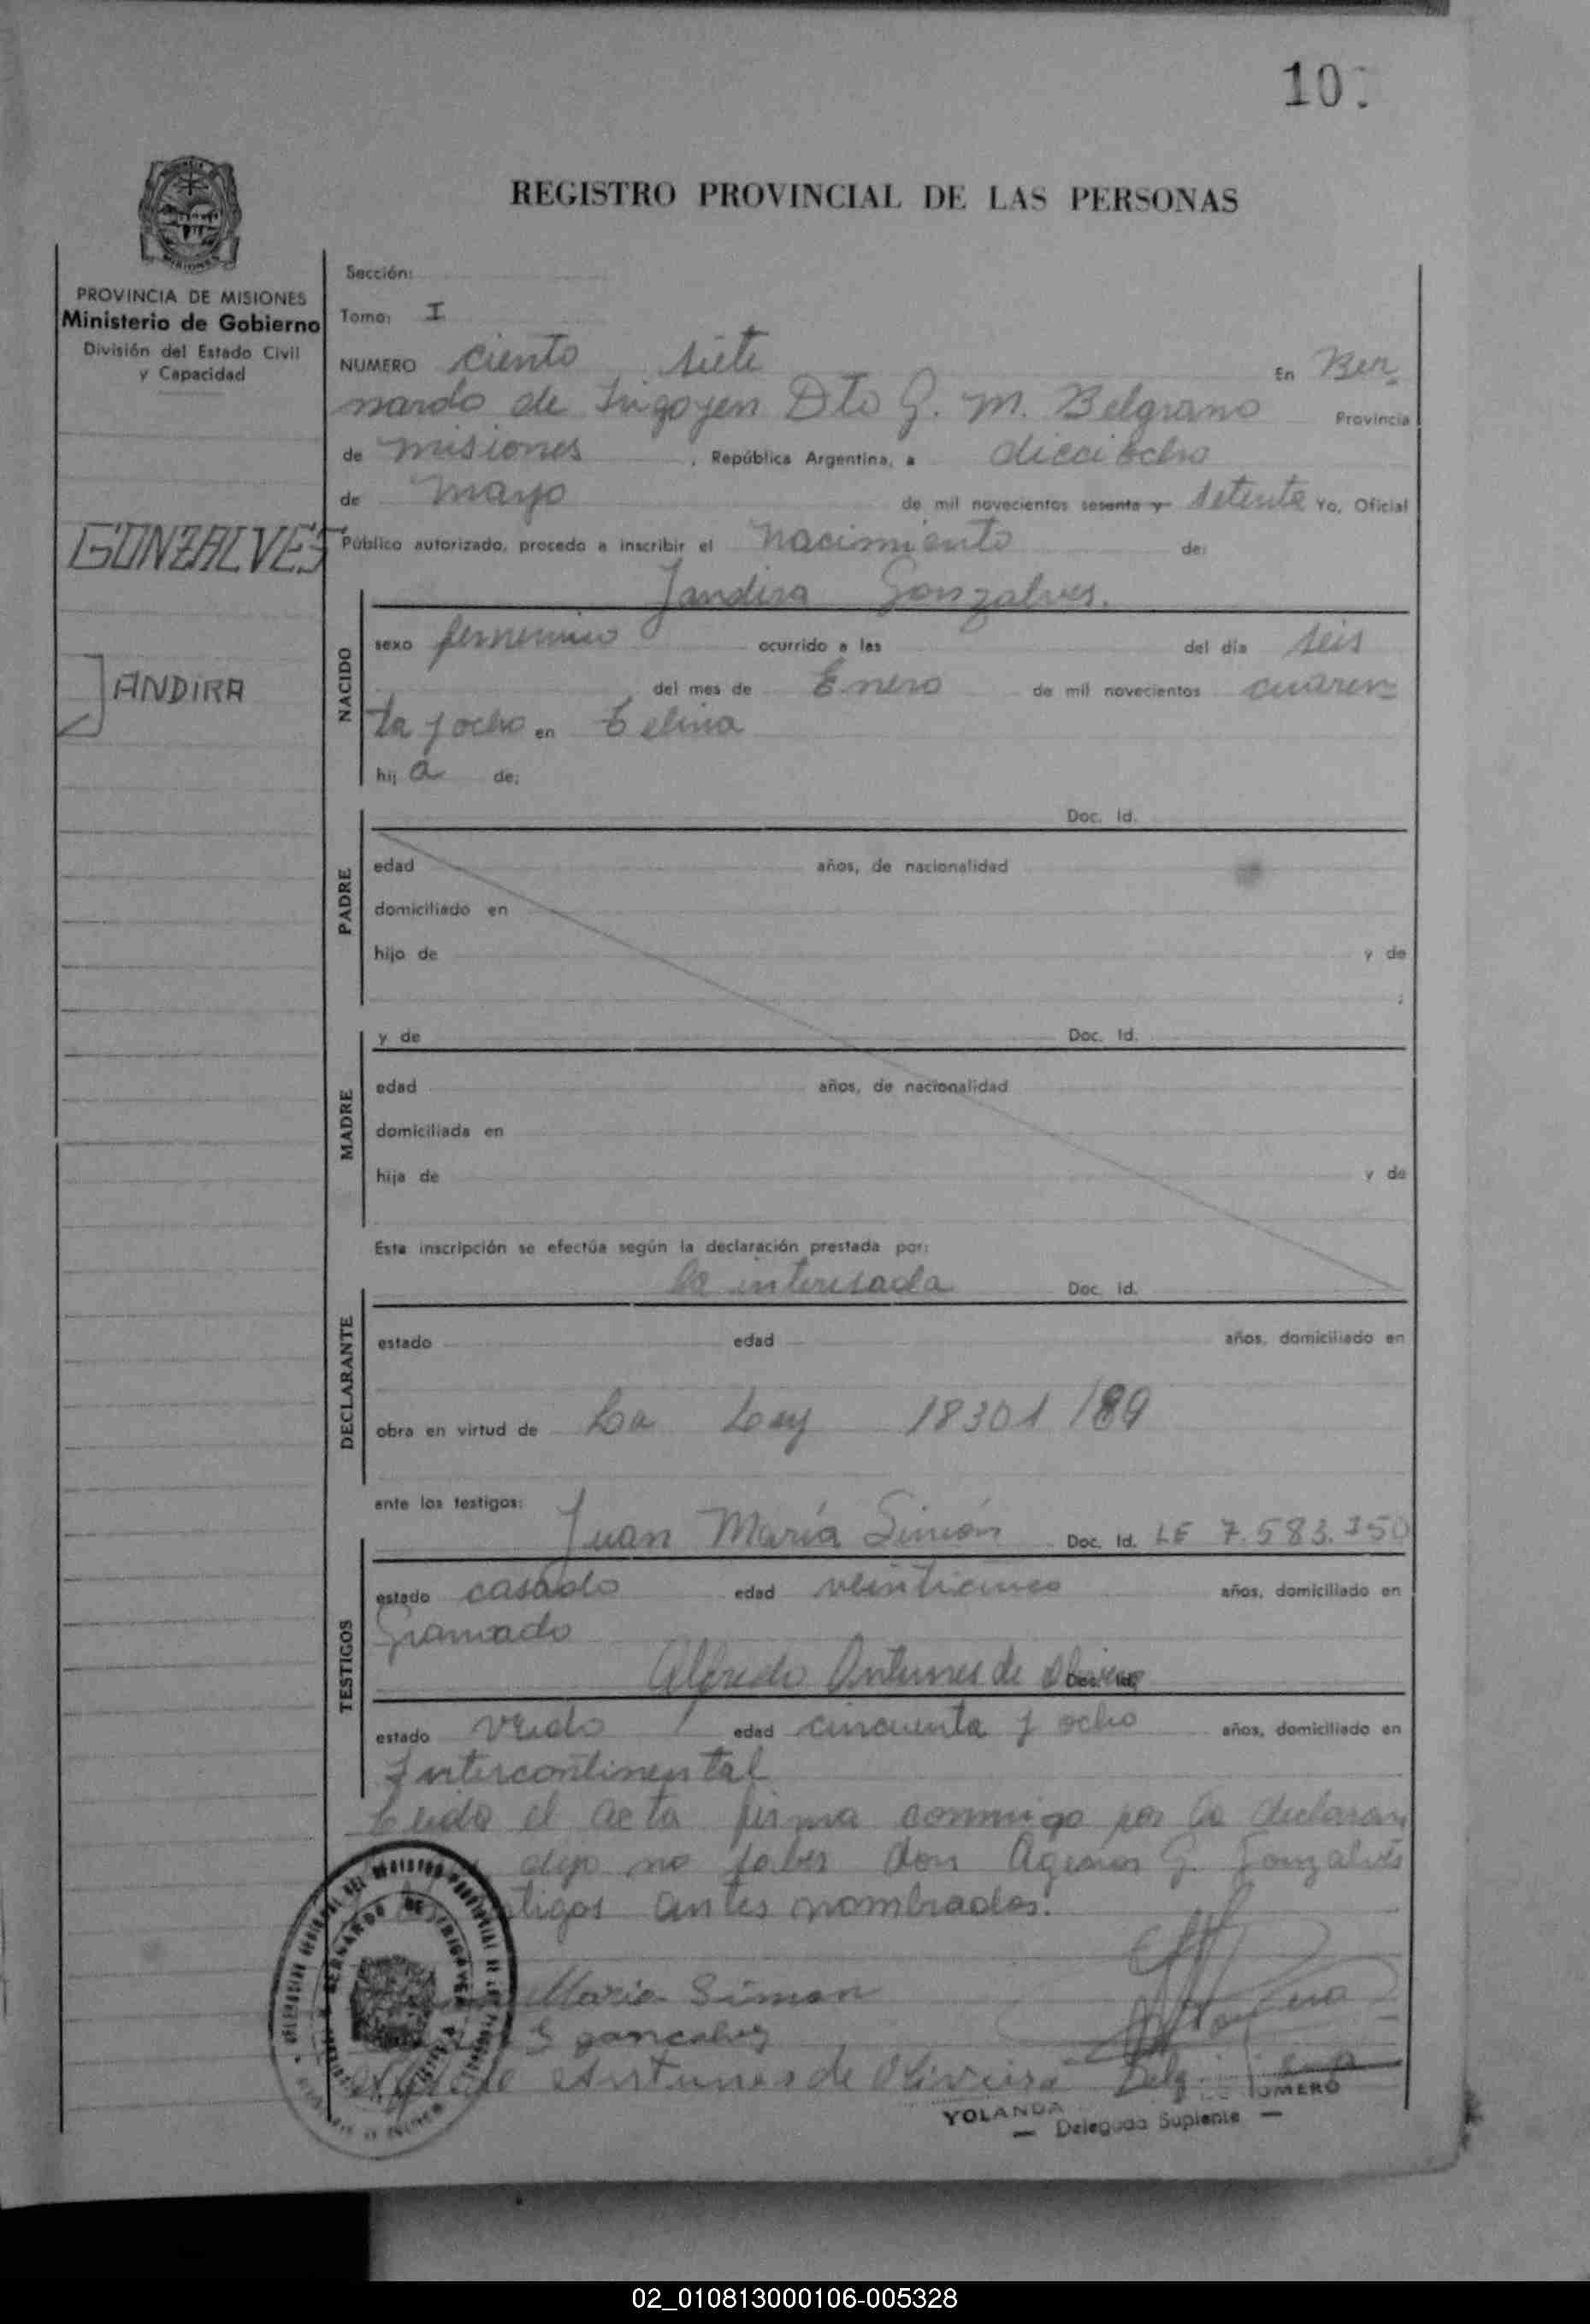 10
REGISTRO PROVINCIAL DE LAS PERSONAS
PROVINCIA DE MISIONES
Ministerio de Gobierno
División del Estado Civil
y Capacidad
GONZALVES
JANDIRA
Sección:
Tomo: I
NUMERO ciento siete En Ber
nardo de Irigoyen Dto G. M. Belgrano Provincia
de Misiones, República Argentina, a dieciocho
de Mayo de mil novecientos sesenta y setenta Yo, Oficial
Público autorizado, procedo a inscribir el Nacimiento de:
Jandira Gonzalves.
NACIDO
sexo femenino ocurrido a las del día seis
del mes de Enero de mil novecientos cuaren
ta y ocho en
hij a de:
PADRE
Doc. Id.
edad años, de nacionalidad
domiciliado en
hijo de y de
;
MADRE
y de Doc. Id.
edad años, de nacionalidad
domiciliada en
hija de y de
Esta inscripción se efectúa según la declaración prestada por:
DECLARANTE
la interesada Doc. Id.
estado edad años, domiciliado en
obra en virtud de La Ley 18301/
ante los testigos:
TESTIGOS
Juan María Simón Doc. Id. LE 7.583.350
estado casado edad veinticinco años, domiciliado en
Gramado
Alfredo Antunes de
estado edad cincuenta y ocho años, domiciliado en
Intercontinental
Leida el acta firma conmigo por la declaran
dijo no saber don G. Gonzalves
antes nombrados.
Maria Simon
G goncalvez
Antunes de Oliveira
YOLANDA ROMERO
— Delegada Suplente —
02_010813000106-005328